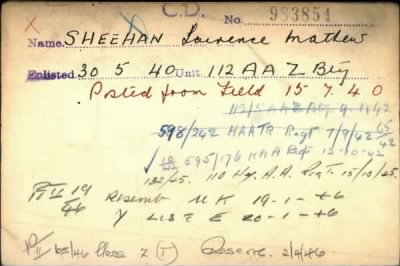 C.D.
No. 983854
Name. SHEEHAN Lawrence Mathew
Enlisted 30 5 40 Unit 112 AA Z Bty
Posted from Field 15 7 40
598/242 HAATR Regt 7/9/42 65/42
595/176 HAA Regt 12-10-42
182/25. 110 Hy. A.A. Regt 15/10/25.
PII 19/46 Disemb U K 19-1-46
Y LIST E 20-1-46
PII 65/46 Class Z (T) Reserve. 2/4/46.